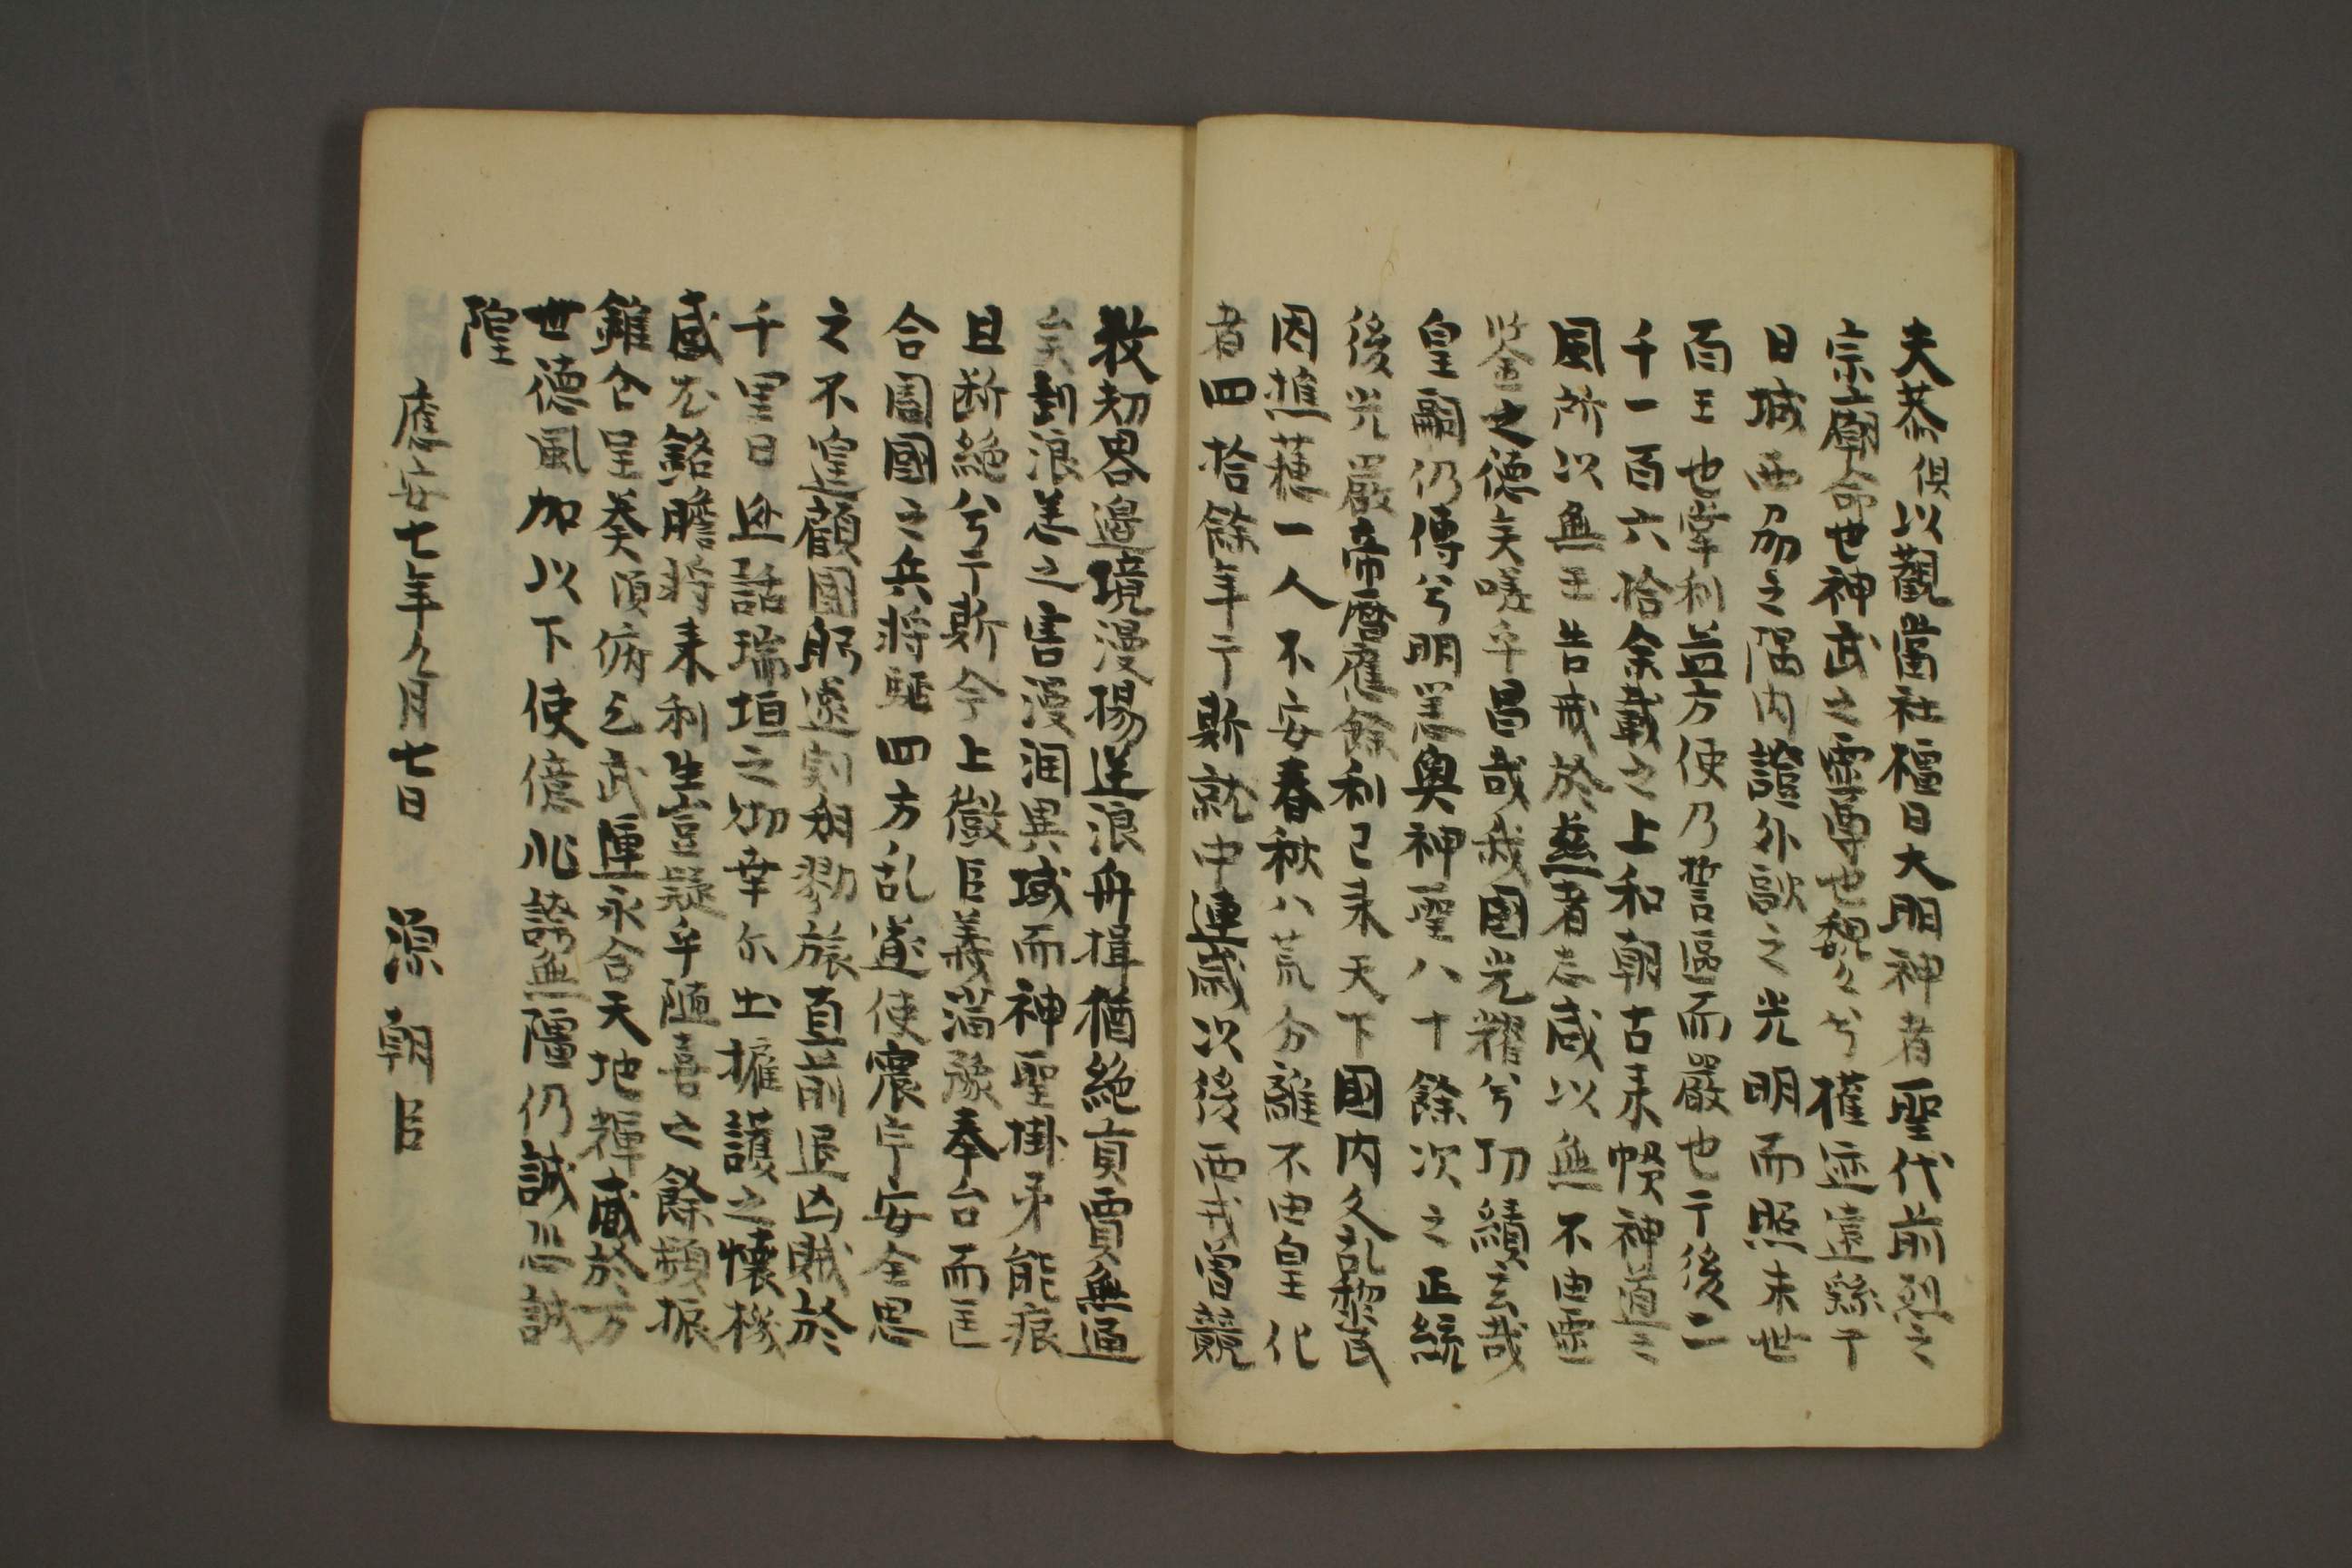 夫恭俱以觀當社檀日大明神者聖代前烈之
宗廟命世神武之靈尊也魏々兮權迹遠繇于
日域西仞之隅内證外融之光明而照末世
百王也寔利益方使乃誓區而嚴也于後二
千一百六拾余載之上和朝古来帳神道之
風所以無王告哉於慈者志咸以無不由靈
鑒之德矣嗟乎昌哉我國光耀兮功績玄哉
皇嗣仍傳兮明差奧神聖八十餘次之正統
後光嚴帝曆應餘利已来天下國内久乱黎民
因蕉穗一人不安春秋八荒分離不由皇化
者四拾餘年于斯就中連歲以後西戎曾競
我刧畧邊境漫揚送浪舟揖猶絶貢賈無逼
矣封浪恙之害漫润異域而神聖掛矛能痕
且断絶兮于斯今上徵臣義滿豫奉台而匡
合闔國之兵将駈四方乱遂使震宇安全思
之不遑顧國躬遠刻相勠旅直前退凶賊於
千里日迩話瑞垣之仞幸尔出擁護之懐機
感尤銘瞻将来利生豈疑乎随喜之餘頻振
錐合呈葵頂俯乞武運永合天地輝威於万
世德風加以下使億兆謌無隱仍誠恐誠
隍
應安七年九月七日　源朝臣